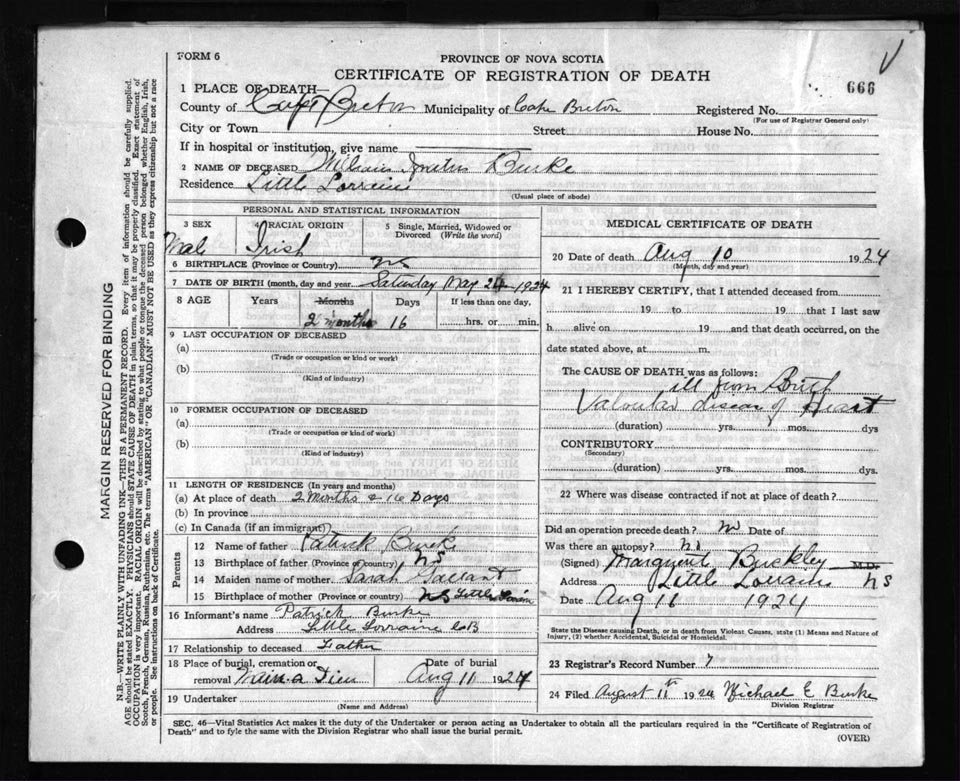 FORM 6
PROVINCE OF NOVA SCOTIA
CERTIFICATE OF REGISTRATION OF DEATH
666
1 PLACE OF DEATH—
County of Cape Breton Municipality of Cape Breton Registered No.
(For use of Registrar General only)
City or Town Street House No.
If in hospital or institution, give name
2 NAME OF DECEASED William Burke
Residence Little Lorraine
(Usual place of abode)
PERSONAL AND STATISTICAL INFORMATION
3 SEX
Male
4 RACIAL ORIGIN
Irish
5 Single, Married, Widowed or
Divorced (Write the word)
6 BIRTHPLACE (Province or Country) NS
7 DATE OF BIRTH (month, day and year) Saturday May 24 1924
8 AGE Years Months Days If less than one day,
2 months 16 hrs. or min.
9 LAST OCCUPATION OF DECEASED
(a)
(Trade or occupation or kind or work)
(b)
(Kind of industry)
10 FORMER OCCUPATION OF DECEASED
(a)
(Trade or occupation or kind of work)
(b)
(Kind of industry)
11 LENGTH OF RESIDENCE (In years and months)
(a) At place of death 2 Months & 16 Days
(b) In province
(c) In Canada (if an immigrant)
Parents
12 Name of father Patrick Burke
13 Birthplace of father (Province or country) NS
14 Maiden name of mother Sarah Gallant
15 Birthplace of mother (Province or country) NS Little Lorraine
16 Informant's name Patrick Burke
Address Little Lorraine CB
17 Relationship to deceased Father
18 Place of burial, cremation or
removal Main-a Dieu
Date of burial
Aug 11 1924
19 Undertaker
(Name and Address)
MEDICAL CERTIFICATE OF DEATH
20 Date of death Aug 10 1924
(Month, day and year)
21 I HEREBY CERTIFY, that I attended deceased from
19 to 19 that I last saw
h alive on 19 and that death occurred, on the
date stated above, at m.
The CAUSE OF DEATH was as follows:
ill from Birth
Valvular disease of Heart
(duration) yrs. mos. dys
CONTRIBUTORY
(Secondary)
(duration) yrs. mos. dys.
22 Where was disease contracted if not at place of death?
Did an operation precede death? No Date of
Was there an autopsy? No
(Signed) Marguerite Buckley M.D.
Address Little Lorraine NS
Date Aug 11 1924
State the Disease causing Death, or in death from Violent Causes, state (1) Means and Nature of
Injury, (2) whether Accidental, Suicidal or Homicidal.
23 Registrar's Record Number 7
24 Filed August 11th 1924 Michael E Burke
Division Registrar
SEC. 46—Vital Statistics Act makes it the duty of the Undertaker or person acting as Undertaker to obtain all the particulars required in the "Certificate of Registration of
Death" and to fyle the same with the Division Registrar who shall issue the burial permit.
(OVER)
MARGIN RESERVED FOR BINDING
N.B.—WRITE PLAINLY WITH UNFADING INK—THIS IS A PERMANENT RECORD. Every item of information should be carefully supplied.
AGE should be stated EXACTLY. PHYSICIANS should STATE CAUSE OF DEATH in plain terms, so that it may be properly classified. Exact statement of
OCCUPATION is very important. RACIAL ORIGIN will be described by stating to what people or tongue the deceased person belonged whether English, Irish,
Scotch, French, German, Russian, Ruthenian, etc. The terms "AMERICAN" OR "CANADIAN" MUST NOT BE USED as they express citizenship but not a race
or people. See instructions on back of Certificate.